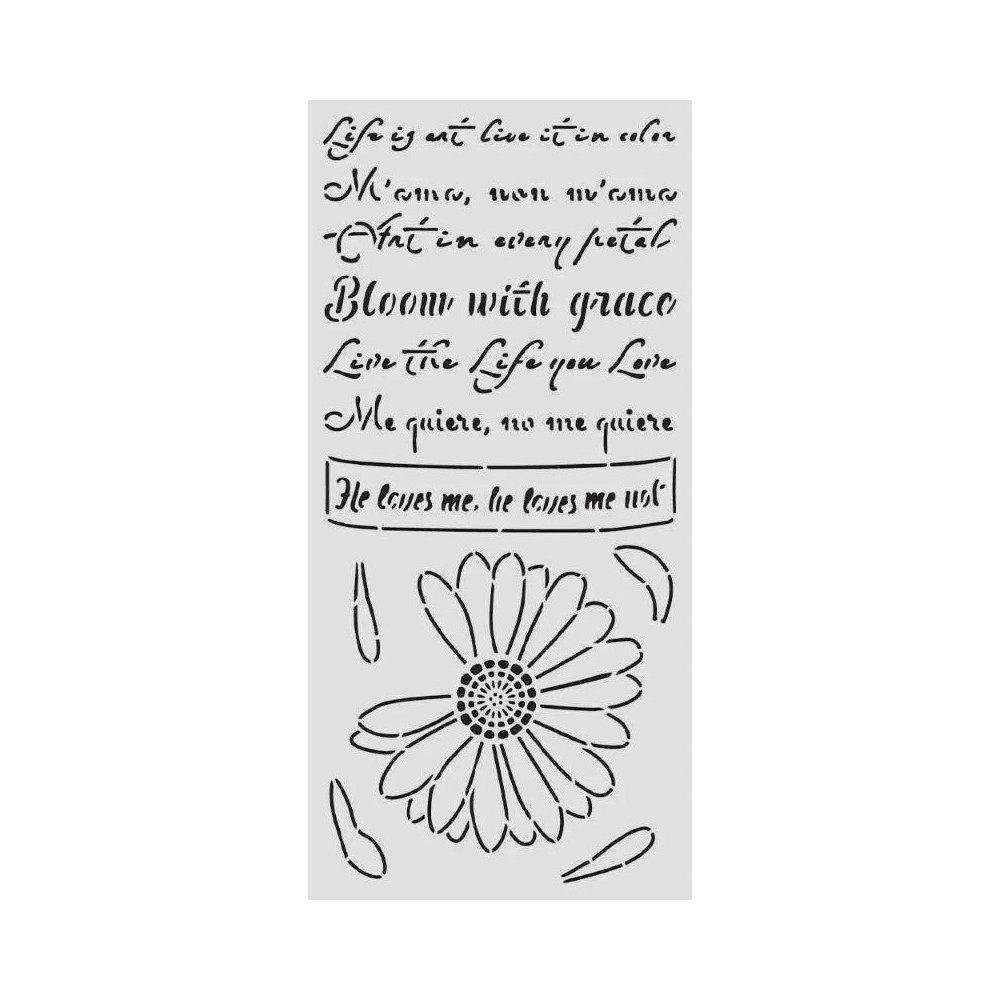 Life is art live it in color
M'ama, non m'ama
Art in every petal
Bloom with grace
Live the Life you Love
Me quiere, no me quiere
He loves me, he loves me not